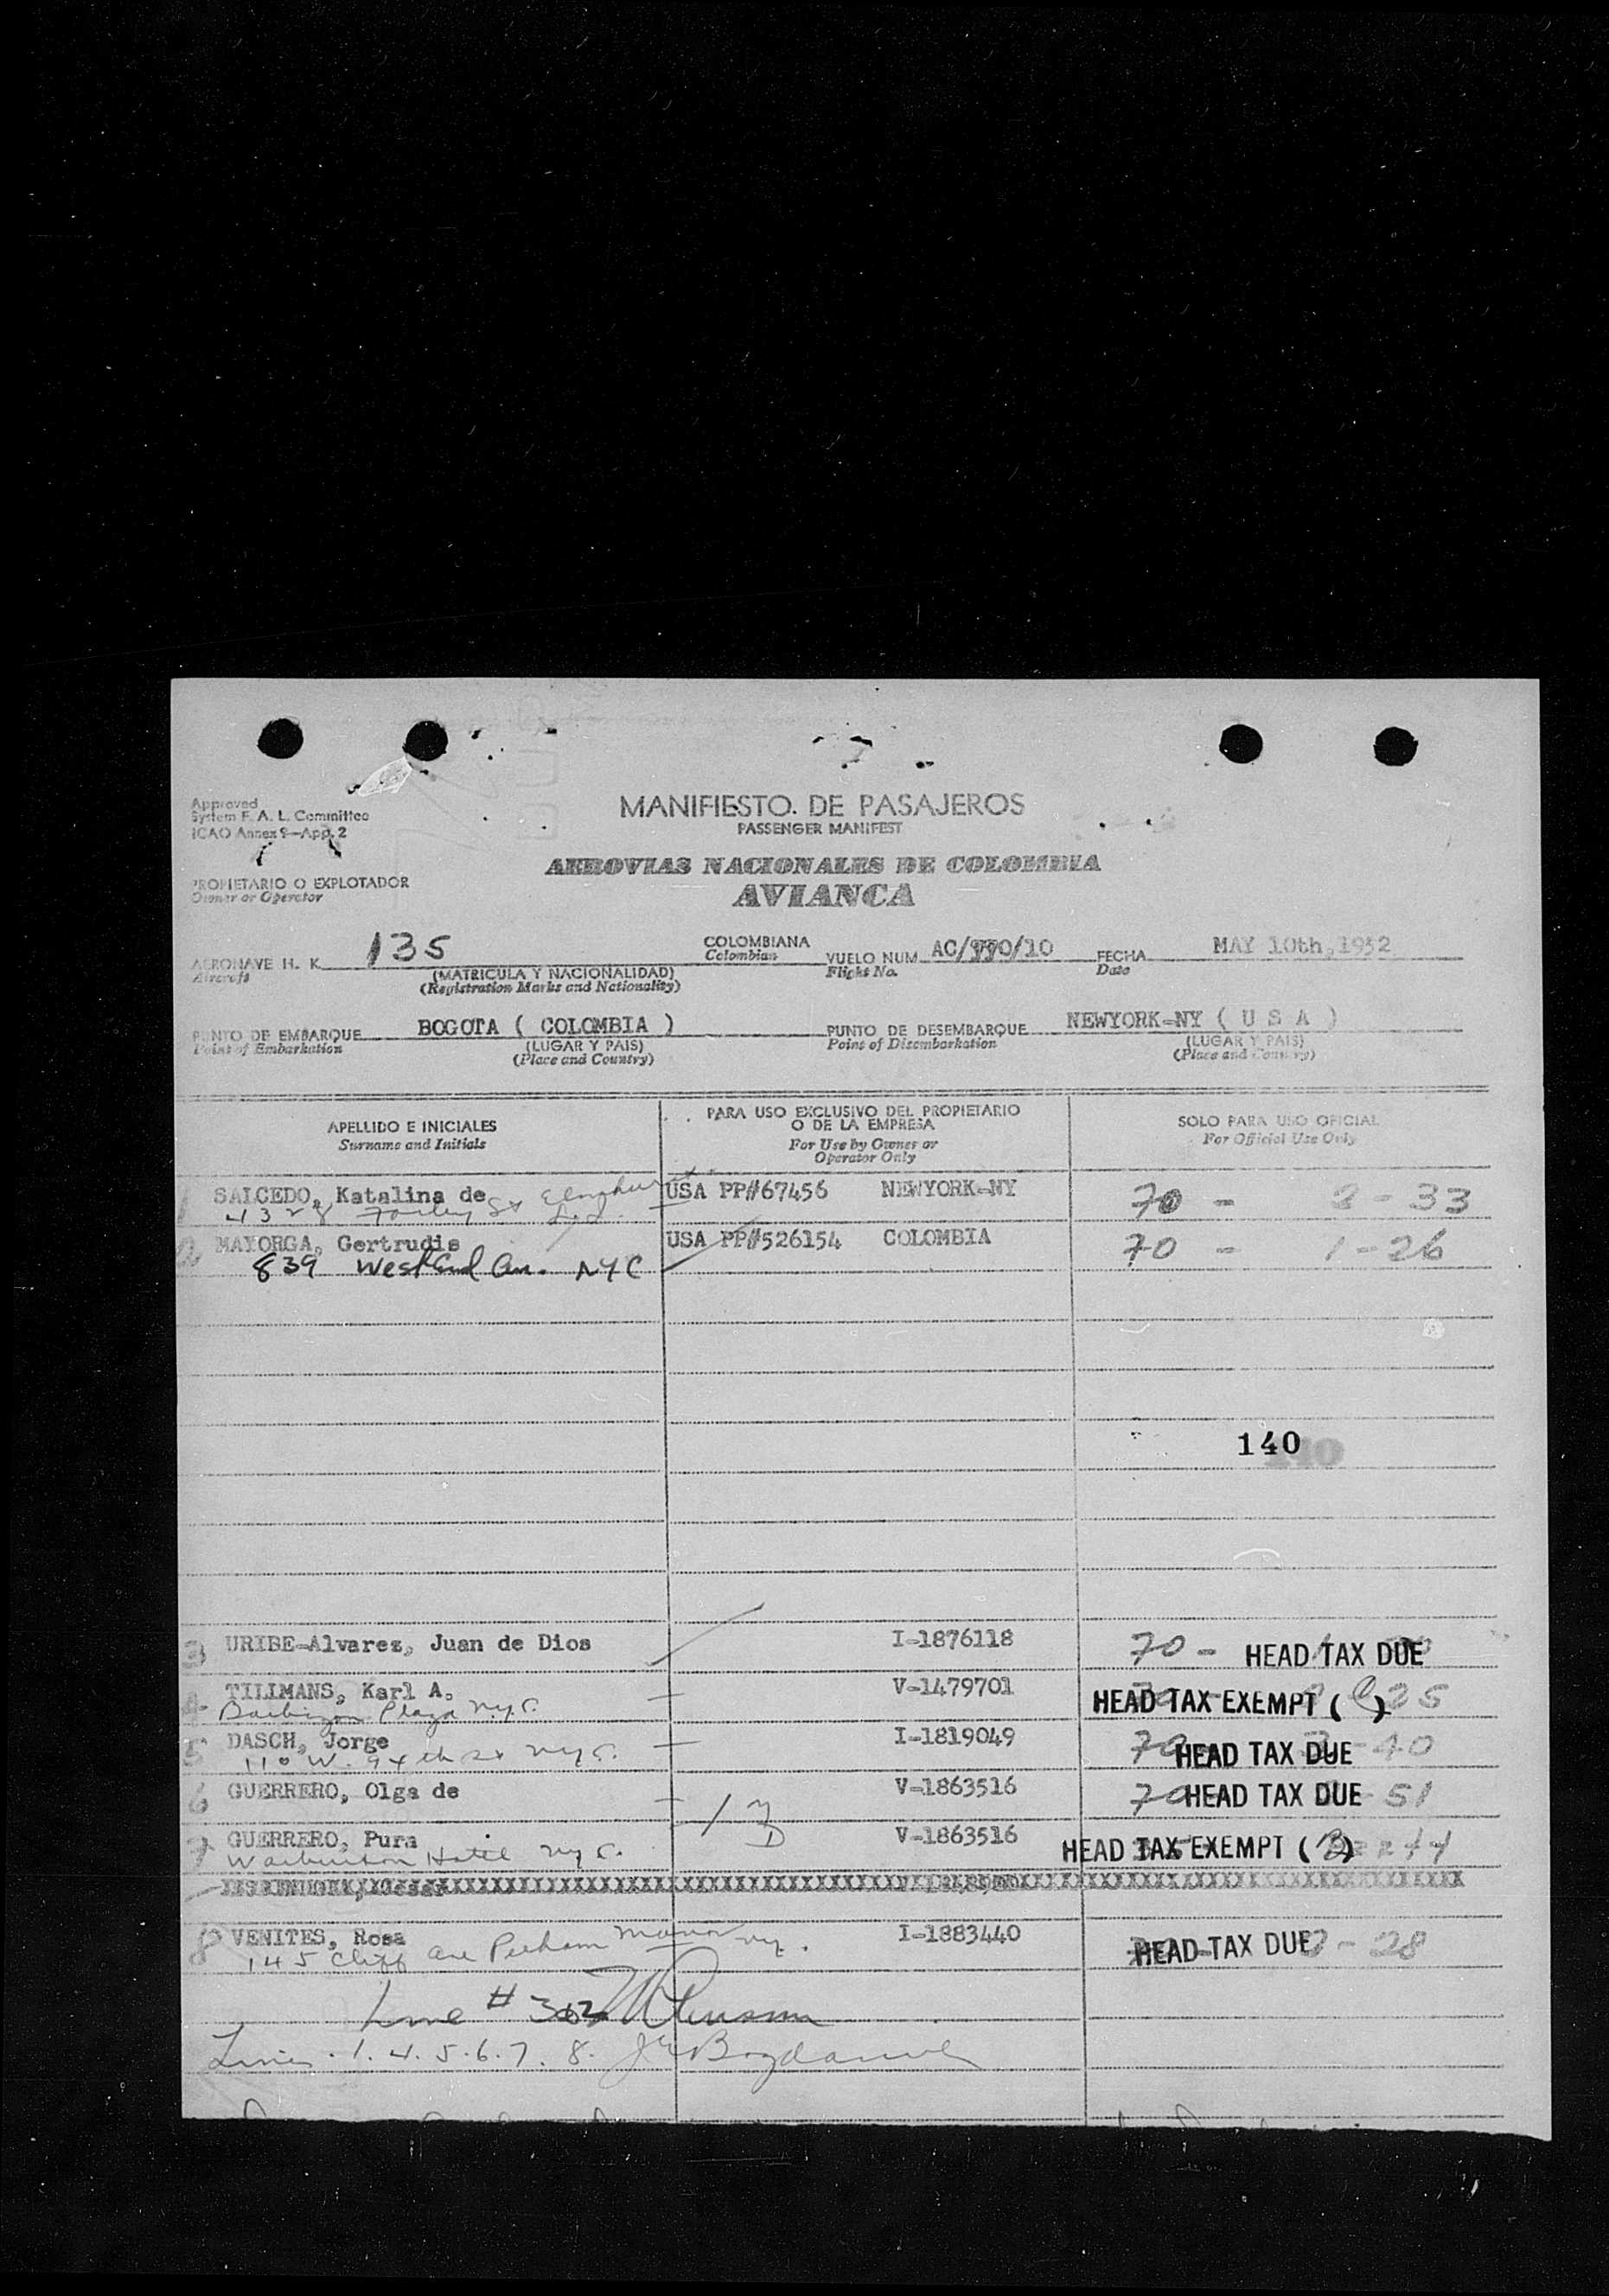 Approved
System F. A. L. Committee
ICAO Annex 9—App. 2
MANIFIESTO. DE PASAJEROS
PASSENGER MANIFEST
AEROVIAS NACIONALES DE COLOMBIA
AVIANCA
PROPIETARIO O EXPLOTADOR
Owner or Operator
AERONAVE H. K. 135 COLOMBIANA VUELO NUM. AC/770/10 FECHA MAY 10th, 1952
Aircraft (MATRICULA Y NACIONALIDAD) Colombian Flight No. Date
(Registration Marks and Nationality)
PUNTO DE EMBARQUE BOGOTA ( COLOMBIA ) PUNTO DE DESEMBARQUE NEWYORK-NY ( U S A )
Point of Embarkation (LUGAR Y PAIS) Point of Disembarkation (LUGAR Y PAIS)
(Place and Country) (Place and Country)
APELLIDO E INICIALES PARA USO EXCLUSIVO DEL PROPIETARIO O DE LA EMPRESA SOLO PARA USO OFICIAL
Surname and Initials For Use by Owner or Operator Only For Official Use Only
1 SALCEDO, Katalina de USA PP#67456 NEWYORK-NY 70 - 2-33
St Elmhurst
2 MAYORGA, Gertrudis USA PP#526154 COLOMBIA 70 - 1-26
839 West End Av. NYC
140
3 URIBE-Alvarez, Juan de Dios I-1876118 70 - HEAD TAX DUE
4 TILLMANS, Karl A. V-1479701 HEAD TAX EXEMPT ( ) 25
Barbizon Plaza NYC.
5 DASCH, Jorge I-1819049 70 HEAD TAX DUE 40
110 W. 94th St NYC.
6 GUERRERO, Olga de V-1863516 70 HEAD TAX DUE 51
7 GUERRERO, Pura V-1863516 HEAD TAX EXEMPT ( )
Hotel NYC.
8 VENITES, Rosa I-1883440 HEAD TAX DUE - 28
145 Cliff Ave Pelham Manor NY.
Line #
Lines. 1. 4. 5. 6. 7. 8.